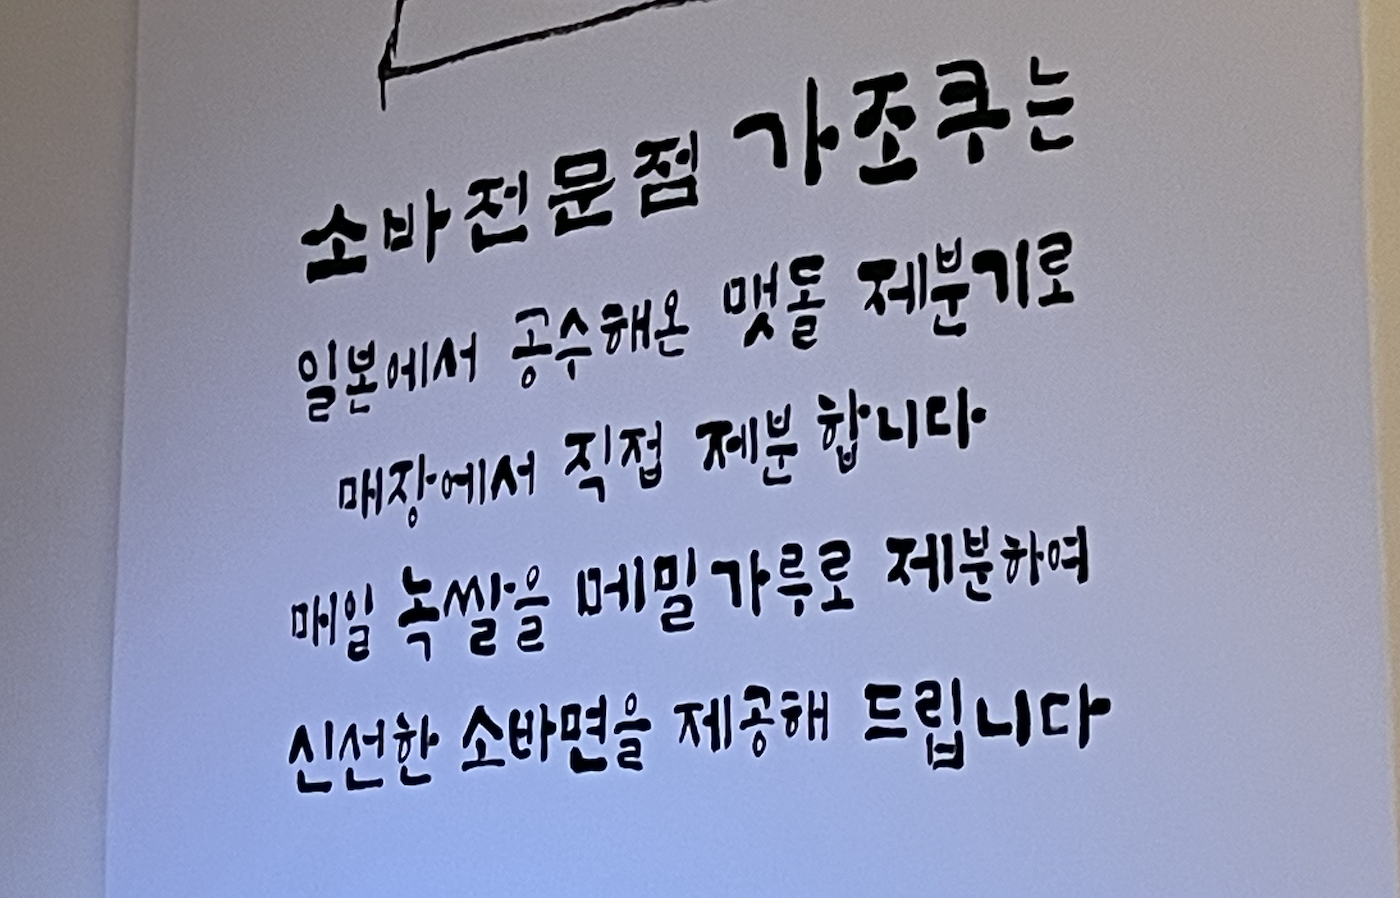 소바전문점 가조쿠는
일본에서 공수해온 맷돌 제분기로
매장에서 직접 제분합니다
매일 녹쌀을 메밀가루로 제분하여
신선한 소바면을 제공해 드립니다